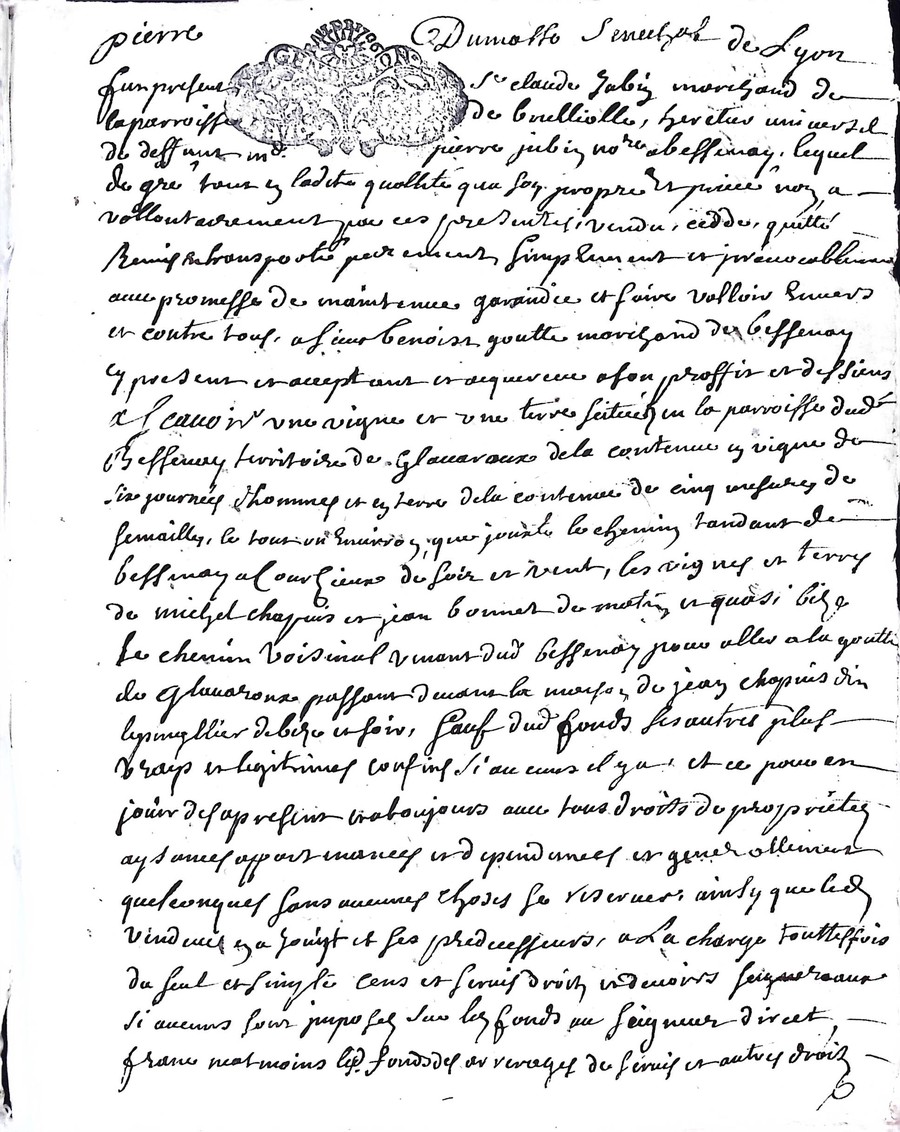 pierre Dumasso Senechal de Lyon
fut present Sr claude Jubin marchand de
la parroisse de brulliolle, heretier universel
de deffunt me. pierre jubin nore a bessenay, lequel
de gre tout en ladite quallité qua son propre et privé nom, a
vollontairement par ces presentes, vendu, cedde, quitté
Remis et transporté purement, simplement et jrrevocablement
avec promesse de maintenue garandie et faire valloir Envers
et contre tous, a sieur benoist goutte marchand de bessenay
cy present et acceptant et acquereur a son proffit et des siens
a Scavoir une vigne et une terre scituées en la parroisse dudt
Bessenay territoire de Glavaroux de la contenue en vigne de
six journées d'hommes et en terre de la contenue de cinq mesures de
semailles, le tout ou Environ, que jouxte le chemin tandant de
bessenay a Courzieux de soir et vent, les vignes et terres
de michel chapuis et jean bonnet de matin et quasi bize
Le chemin voisinal venant dud bessenay pour aller a la goutte
de Glavaroux passant devant la maison de jean chapuis din
de bize et soir, sauf dud fonds ses autres plus
vrays et legitimes confins si aucuns il y a, et ce pour en
jouir des a present et a toujours avec tous droits de proprietés
aysances appartenances et dependances et generallement
quelconques sans aucunes choses se reserver, ainsy que led
vendeur en a jouyt et ses predecesseurs, a La charge touttesfois
du seul et simple cens et servis droits et devoirs seigneuriaux
si aucuns sont jmposés sur les fonds au seigneur direct,
franc neatmoins lesd. fonds des arrerages de servis et autres droits